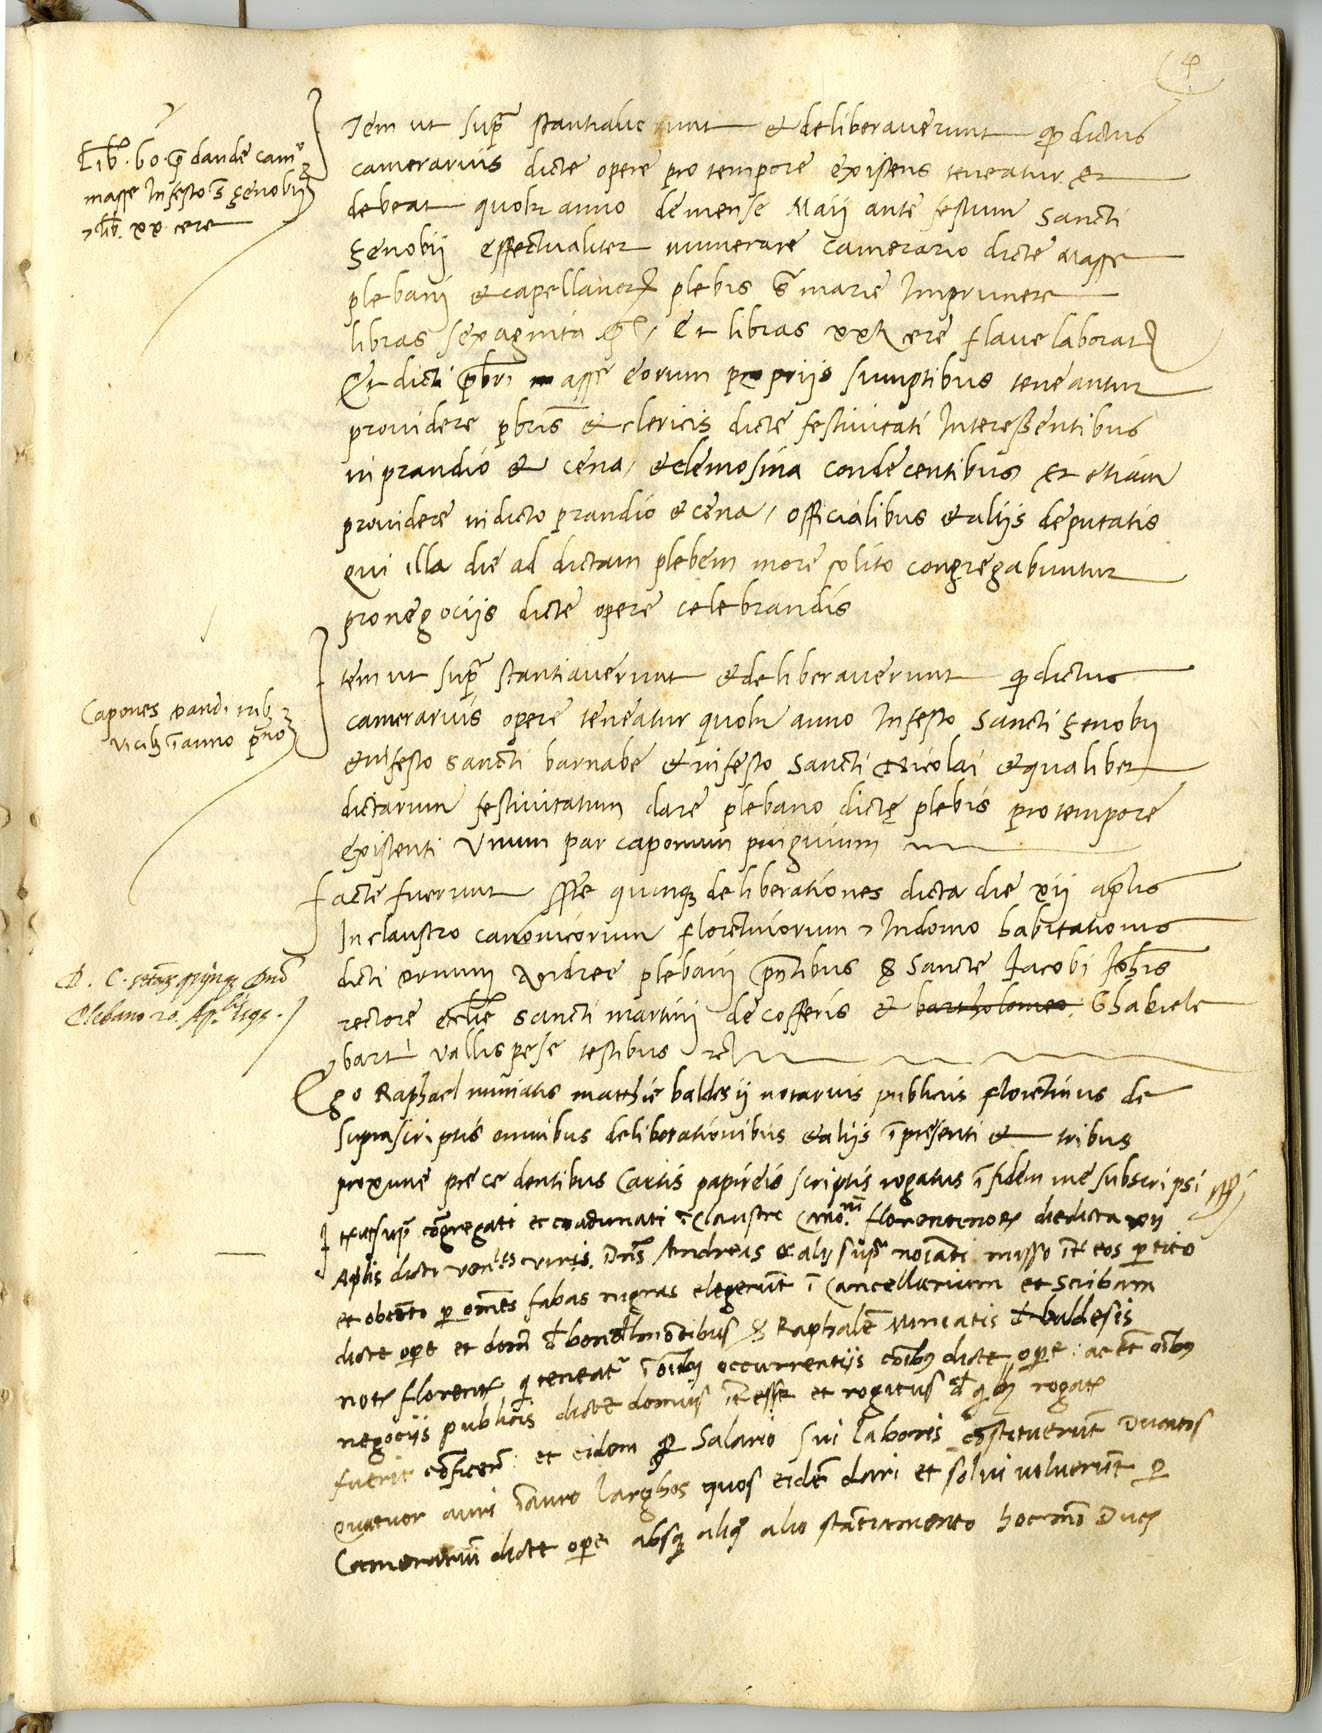 4
Item ut supra stantiaverunt et deliberaverunt quod dictus
camerarius dicte opere pro tempore existens teneatur et
debeat quolibet anno de mense Maij ante festum Sancti
Zenobij effectualiter numerare camerario dicte Masse
plebanj et capellanorum plebis sancte marie Imprunete
libras sexaginta et libras xx cere flave laborate
Et dicti presbiteri masse eorum propriis sumptibus teneantur
providere presbiteris et clericis dicte festivitati Interessentibus
in prandio et cena, et elemosina condecentibus et etiam
providere in dicto prandio et cena, officialibus et aliis deputatis
qui illa die ad dictam plebem more solito congregabuntur
pro negociis dicte opere celebrandis
Lib. 60 dande cam
masse In festo s Zenobij
7 lib. xx cere
Item ut supra stantiaverunt et deliberaverunt quod dictus
camerarius opere teneatur quolibet anno In festo Sancti Zenobij
et in festo Sancti barnabe et in festo Sancti Nicolai et qualibet
dictarum festivitatum dare plebano dicte plebis pro tempore
existenti Unum par caponum pinguium
Capones dandi
vicibus in anno
facte fuerunt quinque deliberationes dicta die xij aprilis
In claustro canonicorum florentinorum 7 In domo habitationis
dicti domini Andree plebanj presentibus Sancte Jacobi Johannis
rectore ecclesie Sancti martinj de cofferis et bartholomeo Ghabriele
bart vallispese testibus
plebano 20. Ap
Ego Raphael miniatis matthie baldesij notarius publicus florentinus de
suprascriptis omnibus deliberationibus et aliis in presenti et tribus
proxime precedentibus Cartis papireis scriptis rogatus in fidem me subscripsi
Item ut supra congregati et coadunati in Claustro Canonicorum florentinorum die dicta xij
Aplis dicti viris. Dns Andreas et alij supra noiati misso inter eos partito
et obtento per omnes fabas nigras elegerunt in Cancellarium et Scribam
dicte opere et domus de bondelmontibus Raphalem Miniatis de baldesis
not florent qui teneatur in omnibus occurrentijs dicte opere: ac omnibus
negocijs publicis dicte domus interesse et rogitus rogatus
fuerit conficere: et eidem pro Salario sui laboris constituerunt Ducatos
quatuor auri in auro larghos quos eidem dari et solvi voluerunt per
Camerarium dicte opere absque aliquo alio stantiamento